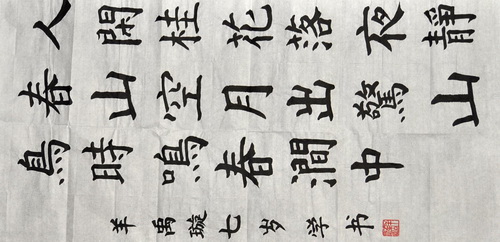 人閑桂花落夜靜
春山空月出驚山
鳥時鳴春澗中
羊禹璇七岁学书